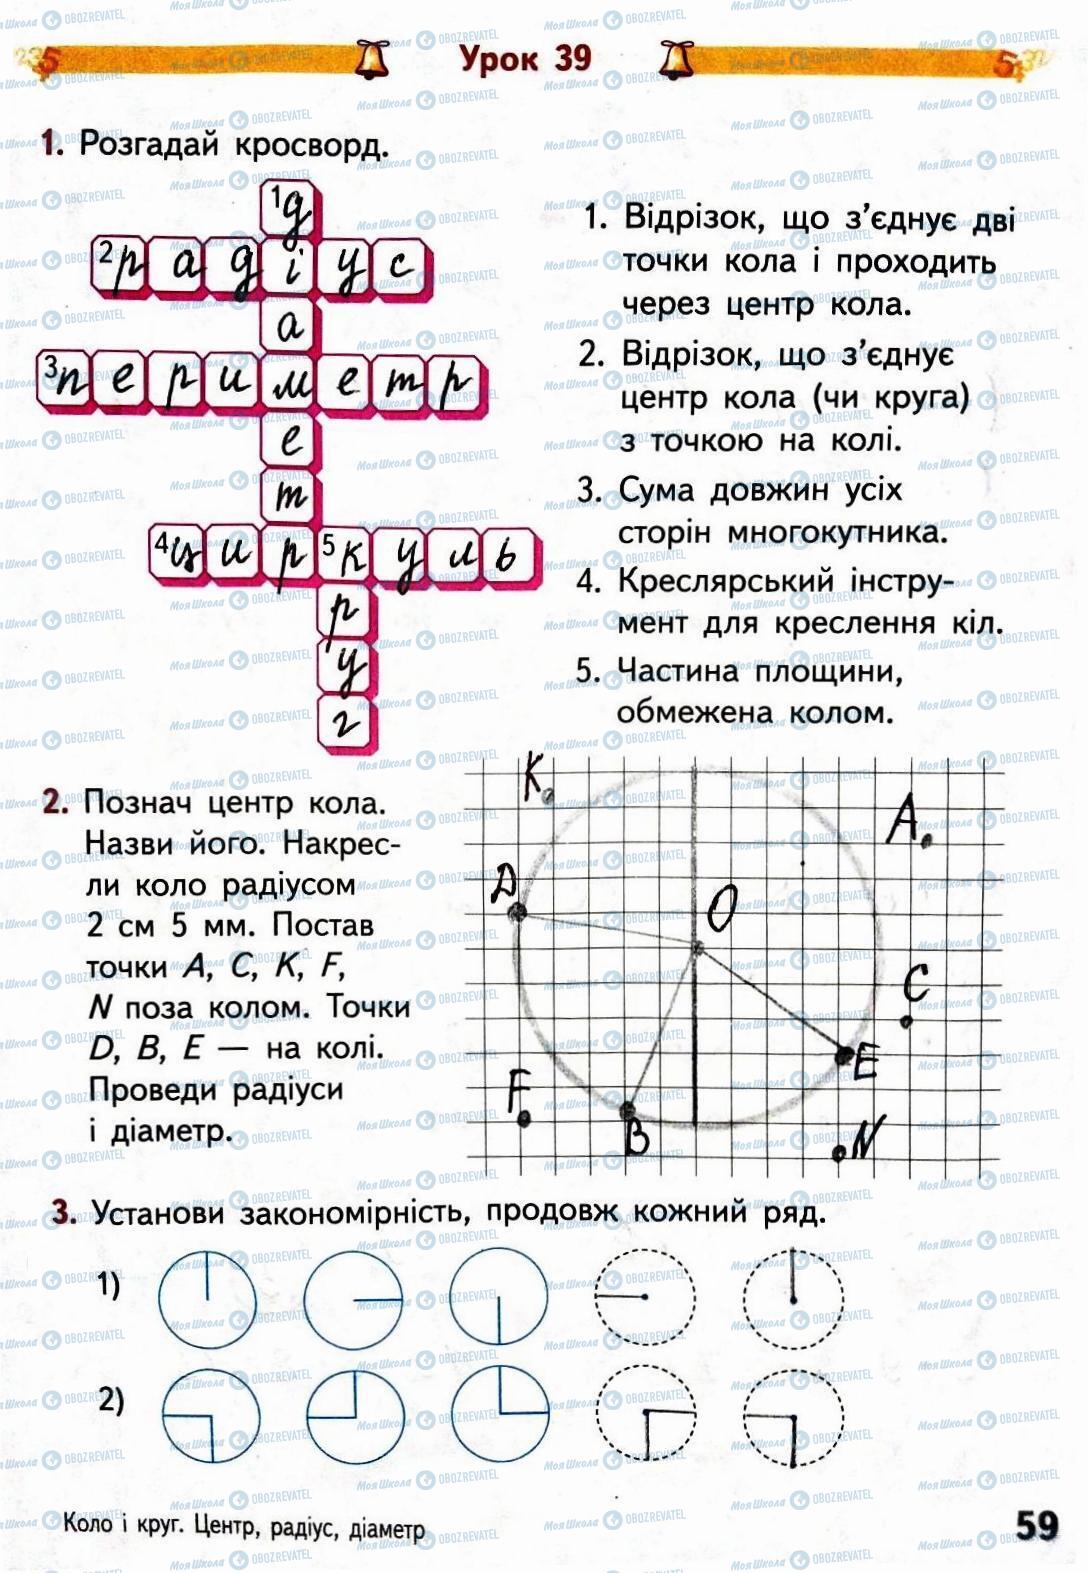 Урок 39
1. Розгадай кросворд.
1д
2радіус
а
3периметр
е
т
4цир5куль
р
у
г
1. Відрізок, що з’єднує дві
точки кола і проходить
через центр кола.
2. Відрізок, що з’єднує
центр кола (чи круга)
з точкою на колі.
3. Сума довжин усіх
сторін многокутника.
4. Креслярський інстру-
мент для креслення кіл.
5. Частина площини,
обмежена колом.
2. Познач центр кола.
Назви його. Накрес-
ли коло радіусом
2 см 5 мм. Постав
точки A, C, K, F,
N поза колом. Точки
D, B, E — на колі.
Проведи радіуси
і діаметр.
K
A
D
O
C
E
F
B
N
3. Установи закономірність, продовж кожний ряд.
1)
2)
Коло і круг. Центр, радіус, діаметр
59
МояШкола OBOZREVATEL